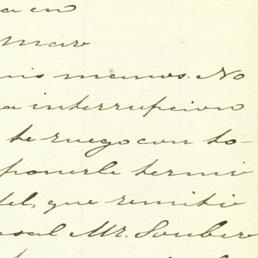 a en
mar
nis manos. No
a interrupcion
te ruego con to-
ponerle termi
del, que remitie
sal Mr. Soubere